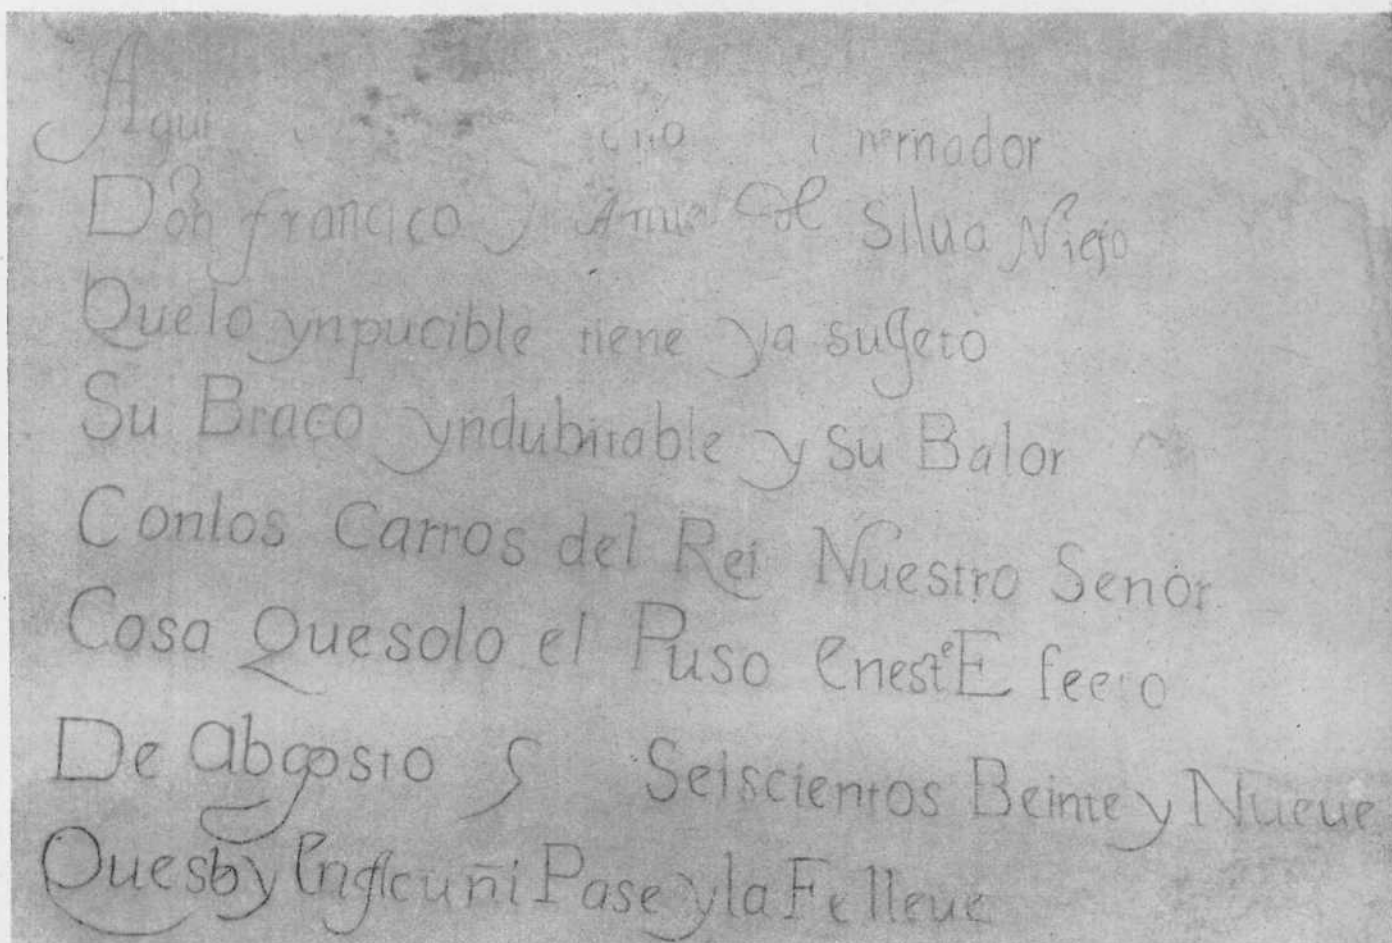 Aqui
Don francico Silua Nieto
Quelo ynpucible tiene ya sugeto
Su Braco yndubitable y su Balor
Conlos Carros del Rei Nuestro Senor
Cosa Quesolo el Puso Eneste Efecto
De Abgosto Seiscientos Beinte y Nueue
Pase yla Fe lleue